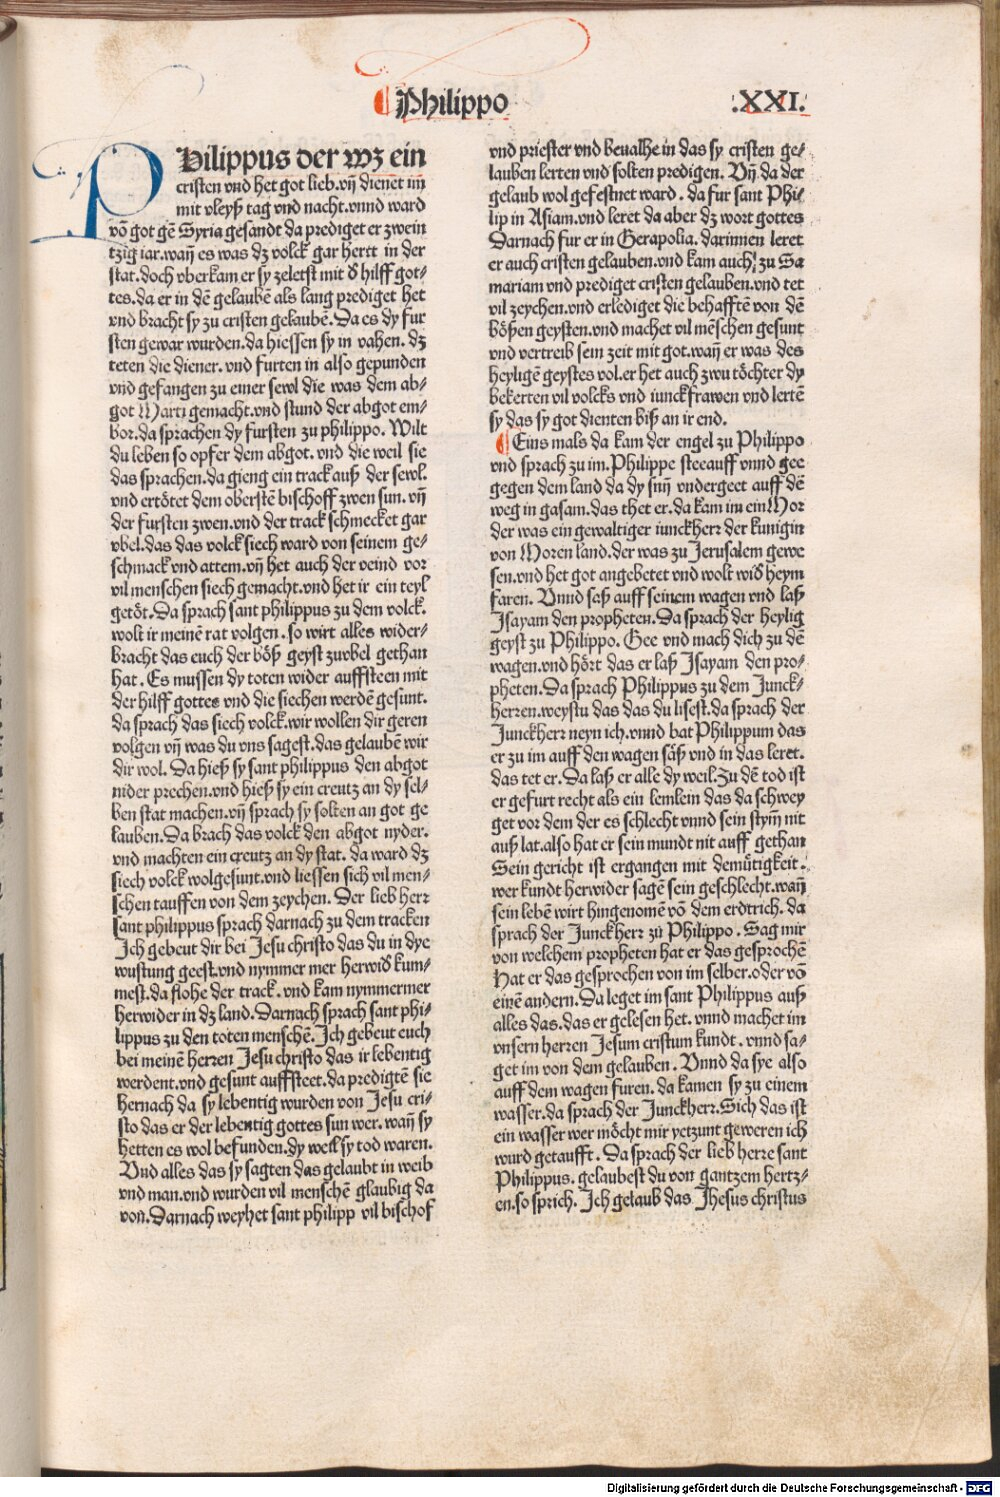 Philippo
.XXI.
PHilippus der wz ein
cristen vnd het got lieb.vn̄ dienet im
mit vleyß tag vnd nacht.vnnd ward
vō got gē Syria gesandt da prediget er zwein
tzig iar.wañ es was dz volck gar hertt in der
stat.doch vberkam er sy zeletst mit d̕ hilff got⸗
tes.da er in dē gelaubē als lang prediget het
vnd bracht sy zu cristen gelaubē.Da es dy fur
sten gewar wurden.da hiessen sy in vahen. dz
teten die diener. vnd furten in also gepunden
vnd gefangen zu einer sewl die was dem ab⸗
got Marti gemacht.vnd stund der abgot em⸗
bor.da sprachen dy fursten zu philippo. Wilt
du leben so opfer dem abgot. vnd die weil sie
das sprachen.da gieng ein track auß der sewl.
vnd ertötet dem oberstē bischoff zwen sun. vn̄
der fursten zwen.vnd der track schmecket gar
vbel.das das volck siech ward von seinem ge⸗
schmack vnd attem.vn̄ het auch der veind vor
vil menschen siech gemacht.vnd het ir ein teyl
getöt.Da sprach sant philippus zu dem volck.
wolt ir meinē rat volgen. so wirt alles wider⸗
bracht das euch der böß geyst zuvbel gethan
hat. Es mussen dy toten wider auffsteen mit
der hilff gottes vnd die siechen werdē gesunt.
da sprach das siech volck.wir wollen dir geren
volgen vn̄ was du vns sagest.das gelaubē wir
dir wol. Da hieß sy sant philippus den abgot
nider prechen.vnd hieß sy ein creutz an dy sel⸗
ben stat machen.vn̄ sprach sy solten an got ge
lauben.Da brach das volck den abgot nyder.
vnd machten ein creutz an dy stat. da ward dz
siech volck wolgesunt.vnd liessen sich vil men⸗
schen tauffen von dem zeychen. Der lieb herr
sant philippus sprach darnach zu dem tracken
Ich gebeut dir bei Jesu christo das du in dye
wustung geest.vnd nymmer mer herwid̕ kum⸗
mest.da flohe der track. vnd kam nymmermer
herwider in dz land. Darnach sprach sant phi⸗
lippus zu den toten menschē. Ich gebeut euch
bei meinē herren Jesu christo das ir lebentig
werdent.vnd gesunt auffsteet.da predigtē sie
hernach da sy lebentig wurden von Jesu cri⸗
sto das er der lebentig gottes sun wer. wañ sy
hetten es wol befunden.dy weil sy tod waren.
Vnd alles das sy sagten das gelaubt in weib
vnd man.vnd wurden vil menschē glaubig da
von.Darnach weyhet sant philipp vil bischof
vnd priester vnd beualhe in das sy cristen ge⸗
lauben lerten vnd solten predigen. Vn̄.da der
gelaub wol gefestnet ward. da fur sant Phi⸗
lip in Asiam.vnd leret da aber dz wort gottes
Darnach fur er in Gerapolia. darinnen leret
er auch cristen gelauben.vnd kam auch zu Sa
mariam vnd prediget cristen gelauben.vnd tet
vil zeychen.vnd erlediget die behafftē von dē
bößen geysten.vnd machet vil mēschen gesunt
vnd vertreib sein zeit mit got.wañ er was des
heyligē geystes vol.er het auch zwu töchter dy
bekerten vil volcks vnd iunckfrawen vnd lertē
sy das sy got dienten biß an ir end.
Eins mals da kam der engel zu Philippo
vnd sprach zu im.Philippe steeauff vnnd gee
gegen dem land da dy sun̄ vndergeet auff dē
weg in gasam.das thet er.da kam im ein Mor
der was ein gewaltiger iunckherr der kunigin
von Moren land.der was zu Jerusalem gewe
sen.vnd het got angebetet vnd wolt wid̕ heym
faren. Vnnd saß auff seinem wagen vnd laß
Isayam den propheten.Da sprach der heylig
geyst zu Philippo. Gee vnd mach dich zu dē
wagen.vnd hört das er laß Isayam den pro⸗
pheten.Da sprach Philippus zu dem Junck⸗
herren.weystu das das du lisest.da sprach der
Junckherr neyn ich.vnnd bat Philippum das
er zu im auff den wagen säß vnd in das leret.
das tet er.Da laß er alle dy weil.Zu dē tod ist
er gefurt recht als ein lemlein das da schwey
get vor dem der es schlecht vnnd sein stym̄ nit
auß lat.also hat er sein mundt nit auff gethan
Sein gericht ist ergangen mit demütigkeit.
wer kundt herwider sagē sein geschlecht.wañ
sein lebē wirt hingenomē vō dem erdtrich. da
sprach der Junckherr zu Philippo. Sag mir
von welchem propheten hat er das gesprochē
Hat er das gesprochen von im selber.oder vō
einē andern.Da leget im sant Philippus auß
alles das.das er gelesen het. vnnd machet im
vnsern herren Jesum cristum kundt. vnnd sa⸗
get im von dem gelauben. Vnnd da sye also
auff dem wagen furen. da kamen sy zu einem
wasser.da sprach der Junckherr.Sich das ist
ein wasser wer möcht mir yetzunt geweren ich
wurd getaufft. Da sprach der lieb herre sant
Philippus. gelaubest du von gantzem hertz⸗
en.so sprich. Ich gelaub das Jhesus christus
Digitalisierung gefördert durch die Deutsche Forschungsgemeinschaft - DFG